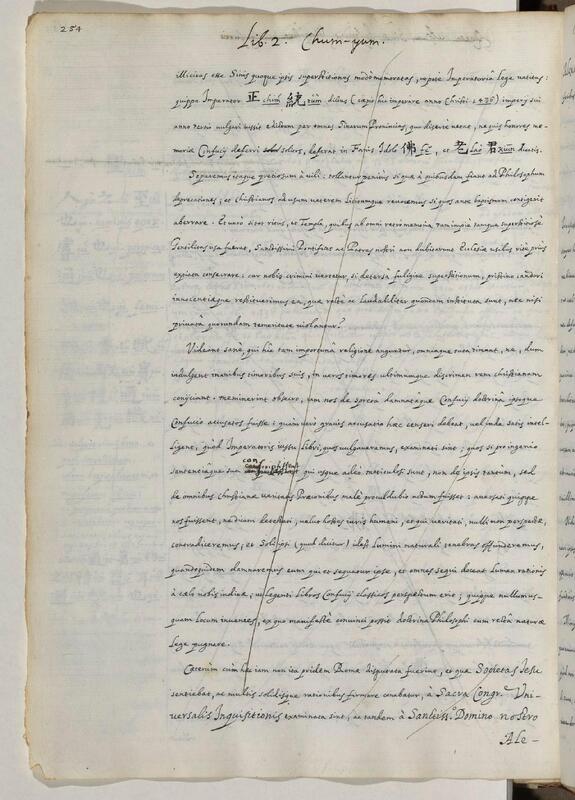 254
Lib. 2. Chum-yum.
illicitas esse Sinis quoque ipsis superstitiones modò memoratas, utpote Imperatoriâ Lege vetitas:
quippe Imperator 正 chim 統 tùm dictus (capit hic imperare anno Christi 1436) imperij sui
anno tertio vulgari iussit edictum per omnes Sinarum Provincias, quo disertè vetat, ne quis honores me-
moriæ Confucij deferri solitos, deferat in Fanis Idoli 佛 fĕ, et 老 lao 君 kiūn dictis.
Separemus itaque pretiosum à vili: tollantur penitus si quæ à quibusdam fiant ad Philosophum
deprecationes; et Christianos ad usum veterem Litorumque revocemus si quos ante baptismum contigerit
aberrare. Et verò si tot ritus, et Templa, quibus ab omni retrò memoria tam impiè tamque superstitiosè
Gentilitas usa fuerat, Sanctissimi Pontifices ac Patres nostri non dubitarunt Ecclesiæ usibus ritè prius
expiata conservare: cur nobis crimini vertetur, si detersâ fuligine superstitionum, pristino candori
innocentiæque restituerimus ea, quæ rectè ac laudabiliter quondam instituta sunt, nec nisi
privatâ quorundam temeritate violantur?
Videant sanè, qui hîc tam importunâ religione anguntur, omniaque tuta timent, ne, dum
indulgent inanibus timoribus suis, in veros timores ultimumque discrimen rem christianam
conijciant: meminerint obsecro, iam nos de spretâ damnatâque Confucij doctrinâ ipsoque
Confucio accusatos fuisse: quàm verò gravis accusatio hæc censeri debeat, vel inde satis intel-
ligent, quòd Imperatoris iussu Libri, quos vulgaramus, examinati sint; quos si pro ingenio
sententiâque suâ conscripsissent qui usque adeò meticulosi sunt, non de ipsis tantùm, sed
de omnibus Christianæ veritatis Præconibus malè proculdubio actum fuisset: accusati quippe
nos fuissent, ac etiam eiecti, velut hostes iuris humani, et qui veritati nulli non perspectæ,
contradiceremus, et Soli ipsi (quod dicitur) idest Lumini naturali tenebras offunderemus,
quandoquidem damnaremus eum qui et sequatur ipse, et omnes sequi doceat Lumen rationis
à cælo nobis inditæ, ut legenti Libros Confucij classicos perspectum erit; quippe nullumus-
quam locum inveniet, ex quo manifestè convinci possit doctrinam Philosophi cum rectâ naturæ
Lege pugnare.
Cæterùm cum hæc iam non ita pridem Romæ disputata fuerint, et quæ Societas Iesu
sentiebat, ac multis solidisque rationibus firmare conabatur, à Sacra Congr. Uni-
versalis Inquisitionis examinata sint, ac tandem à Sanctiss.º Domino nostro
Ale-